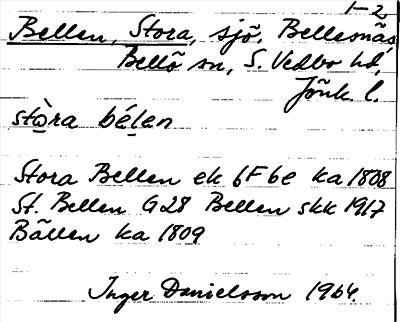 1-2
Bellen, Stora, sjö, Bellesnäs
Bellö sn, S. Vedbo hd,
Jönk. l.
stòra bélen
Stora Bellen ek 6F6e ka 1808
St. Bellen G28 Bellen skk 1917
Bällen ka 1809
Inger Danielsson 1964.